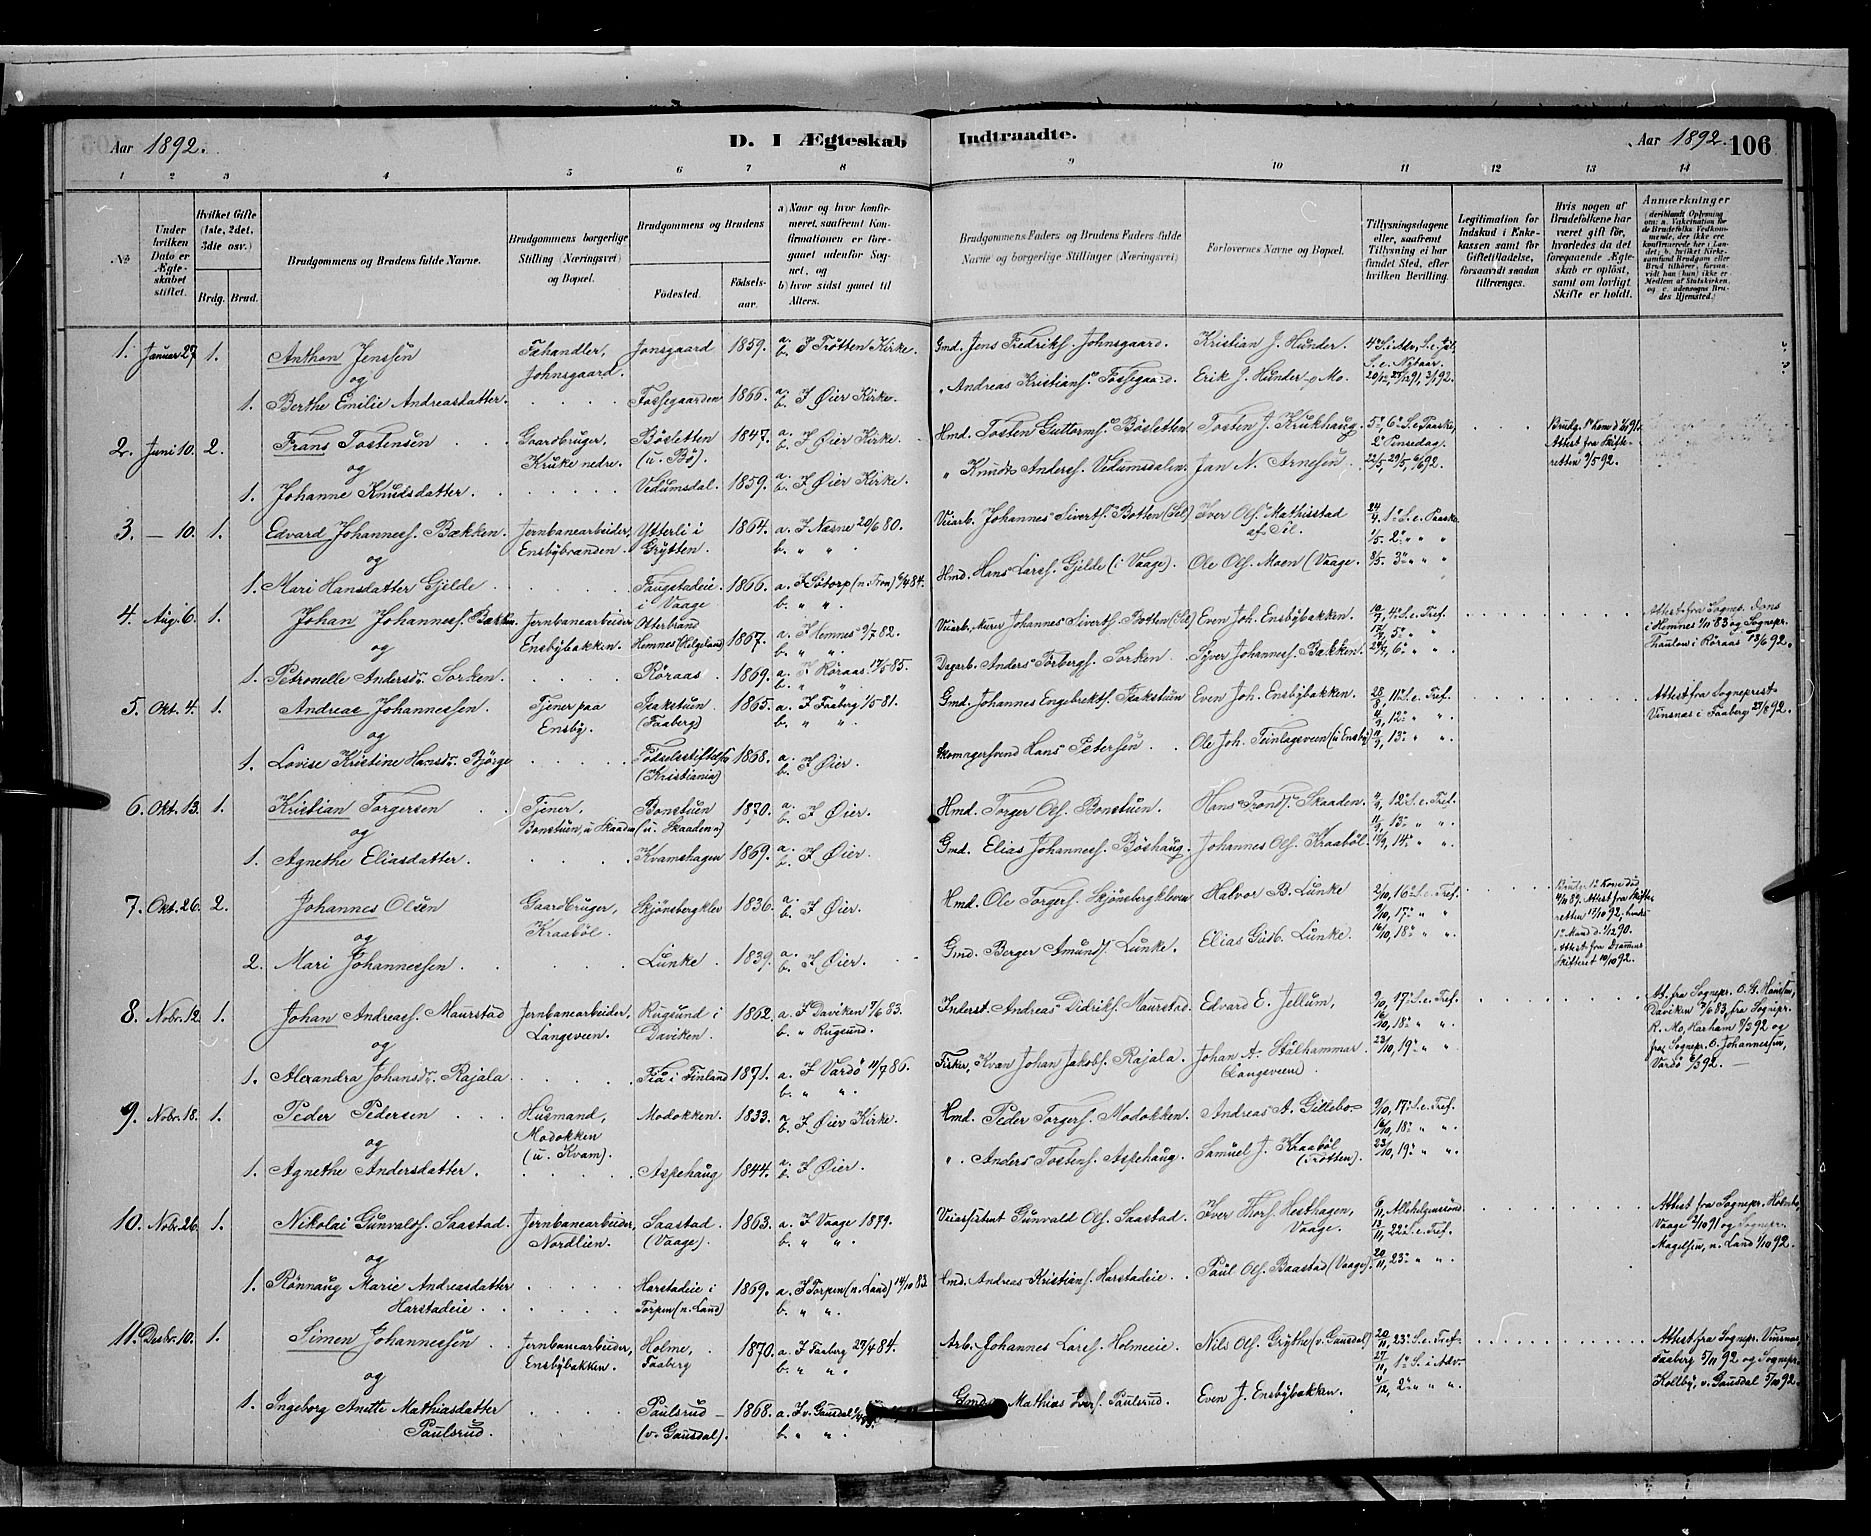 Aar 1892.
D. I Ægteskab Indtraadte.
Aar 1892. 106
1 2 3 4 5 6 7 8 9 10 11 12 13 14
№
Under hvilken Dato er Ægteskabet stiftet.
Hvilket Gifte (1ste, 2det, 3die osv.)
Brdg. Brud.
Brudgommens og Brudens fulde Navne.
Brudgommens borgerlige Stilling (Næringsvei) og Bopæl.
Brudgommens og Brudens
Fødested.
Fødselsaar.
a) Naar og hvor konfirmeret, saafremt Konfirmationen er foregaaet udenfor Sognet, og
b) hvor sidst gaaet til Alters.
Brudgommens Faders og Brudens Faders fulde Navne og borgerlige Stillinger (Næringsvei)
Forlovernes Navne og Bopæl.
Tillysningsdagene eller, saafremt Tillysning ei har fundet Sted, efter hvilken Bevilling.
Legitimation for Indskud i Enkekassen samt for Giftetilladelse, forsaavidt saadan tiltrænges.
Hvis nogen af Brudefolkene har været gift før, hvorledes da det foregaaende Ægteskab er opløst, samt om lovligt Skifte er holdt.
Anmærkninger
1. Januar 27 1. Anthon Jenssen Fæhandler, Johnsgaard. Jonsgaard 1859. a. b. I Trøtten Kirke. Gmd. Jens Fredriks. Johnsgaard. Kristian J. Hunder. 4de S. i Adv., S. e. Jul, S. e. Nytaar.
og
1. Berthe Emilie Andreasdatter. Fossegaarden 1866. a. b. I Øier Kirke. " Andreas Kristians. Fossegaard. Erik J. Hunder - Mo. 20/12, 27/12 91, 3/1 92.
2. Juni 10. 2. Frans Tostensen Gaardbruger, Kruke nedre. Bøsletten (u. Bø). 1847. a. b. I Øier Kirke. Hmd. Tosten Guttorms. Bøsletten. Tosten J. Krukhaug. 5te, 6te S. e. Paaske, 2. Pinsedag. Attest fra Skifteretten 9/5 92.
og
1. Johanne Knudsdatter. Vedumsdal. 1859. a. b. I Øier Kirke. " Knudt Anders. Vedumsdalen. Jan N. Arnesen. 22/5, 29/5, 6/6 92.
3. — 10. 1. Edvard Johanness. Bækken. Jernbanearbeider, Ensbybranden. Ytterli i Grytten. 1864. a. I Næsne 20/6 80. b. " " Veiarb. Johannes Siverts. Botten (Sel) Iver Ols. Mathisstad af Sel. 24/4, 1ste S. e. Paaske 1/5 2den " "
og
1. Mari Hansdatter Gjelde Faugstadeie i Vaage 1866. a. I Sótorp (n. Fron) 6/4 84. b. " " Hmd. Hans Lars. Gjelde (i Vaage). Ole Ols. Moen (Vaage. 8/5 3die " "
4. Aug. 6. 1. Johan Johanness. Bækken Jernbanearbeider, Ensbybakken. Otterbrand Hemnes (Helgeland) 1867. a. I Hemnes 9/7 82. b. " " Veiarb., Murer Johannes Siverts. Botten (Sel) Even Joh. Ensbybakken. 10/7, 4de S. e. Tref. 17/7, 5te " " Attest fra Sognep. Dons i Hemnes 1/10 83 og Sognepr. Thaulow i Röraas 13/6 92.
og
1. Petronelle Andersdr. Sorken. Röraas 1869. a. I Röraas 17/5 85. b. " " Dagarb. Anders Torbergs. Sorken. Syver Johanness. Bækken. 24/7, 6te " "
5. Okt. 4. 1. Andreas Johannessen. Tjener paa Ensby. Isakstuen (Faaberg) 1865. a. I Faaberg 1/5 81. b. " " Gmd. Johannes Engebrekts. Isakstuen Even Joh. Ensbybakken. 28/8, 11te S. e. Tref. 4/9, 12te " " Attest fra Sogneprest Vinsnæs i Faaberg 27/8 92.
og
1. Lovise Kristine Hansdr. Bjørge Fødselsstiftelse (Kristiania) 1868. a. b. I Øier. Skomagersvend Hans Petersen. Ole Joh. Teinlagsveen (u Ensby) 11/9, 13de " "
6. Okt. 13. 1. Kristian Torgersen Tjener, Bonstuen u Skaaden Bonstuen (u. Skaaden n) 1870. a. b. I Øier. Hmd. Torger Ols. Bonstuen. Hans Tronds. Skaaden. 4/9, 12te S. e. Tref. 11/9, 13de " "
og
1. Agnethe Eliasdatter. Kvamshagen 1869. a. b. I Øier. Gmd. Elias Johanness. Böshaug. Johannes Ols. Kraaböl. 18/9, 14de " "
7. Okt. 26. 2. Johannes Olsen Gaardbruger, Kraaböl. Skjønsbergklev 1836. a. b. I Øier. Hmd. Ole Torgers. Skjönsbergkleven Halvor B. Lunke 2/10, 16de S. e. Tref. 9/10, 17de " " Brudg. 1ste Kone död 4/11 89. Attest fra Skifteretten 17/10 92, hendes 1ste Mand d. 1/12 90. Attest fra Drammens Skifteret 10/10 92.
og
2. Mari Johannessen. Lunke. 1839. a. b. I Øier. Gmd. Berger Amunds. Lunke. Elias Gudb. Lunke. 16/10, 18de " "
8. Nobr. 12. 1. Johan Andreass. Maurstad Jernbanearbeider, Langsveen. Rugsund i Daviken. 1862. a. I Daviken 7/6 83. b. " Rugsund. Inderst. Andreas Didriks. Maurstad. Edvard E. Jellum, 9/10, 17de S. e. Tref. 16/10, 18de " " At. fra Sognepr. O. H. Daviken 7/6 83, fra Sognepr. R. Mo, Harham 9/3 92 og fra Sognepr. O. Johannessen, Vardö 6/3 92.
og
1. Alexandra Johansdr. Rajala. i Finland 1871. a. I Vardö 11/7 86. b. " " Fisker, Kvæn Johan Jakobs. Rajala. Johan A. Stålhammar. Langsveen. 23/10, 19de " "
9. Nobr. 18. 1. Peder Pedersen Husmand, Modokken (u. Kvam). Modokken. 1833. a. b. I Øier Kirke. Hmd. Peder Torgers. Modokken. Andreas A. Gillebo. 9/10, 17de S. e. Tref. 16/10, 18de " "
og
1. Agnethe Andersdatter. Aspehaug 1844. a. b. I Øier. " Anders Tostens. Aspehaug. Samuel J. Kraaböl (Trötten). 23/10, 19de " "
10. Nobr. 26. 1. Nikolai Gunvalds. Saastad. Jernbanearbeider, Nordlien. Saastad. (Vaage). 1863. a. I Vaage 1879. b. " " Veiassistent Gunvald Ols. Saastad. Iver Thors. Hesthagen, Vaage. 6/11, Allehelgenssönd. 13/11, 22de S. e. Tref. Attest fra Sognepr. Holmbo, Vaage 2/10 91 og Sognepr. Magelsen, n. Land 1/10 92.
og
1. Rønnaug Marie Andreasdatter Harstadeie. Harstadeie i Torpen (n. Land) 1869. a. I Torpen (n. Land) 14/10 83. b. " " Hmd. Andreas Kristians. Harstadeie. Paul Ols. Baastad (Vaage). 20/11, 23de " "
11. Desbr. 10. 1. Simen Johannessen Jernbanearbeider, Ensbybakken. Holme, Faaberg 1870. a. I Faaberg 27/4 84. b. " " Arb. Johannes Lars. Holmeie. Nils Ols. Grythe (v. Gausdal) 20/11, 23de S. e. Tref. 27/11, 1ste S. i Adv. Attest fra Sognepr. Vinsnæs, Faaberg 5/11 92 og Sognepr. Kolby, v. Gausdal 5/10 92.
og
1. Ingeborg Anette Mathiasdatter Paulsrud. Paulsrud (v. Gausdal). 1868. a. I v. Gausdal b. " " Gmd. Mathias Ivers. Paulsrud. Even J. Ensbybakken. 4/12, 2den " "